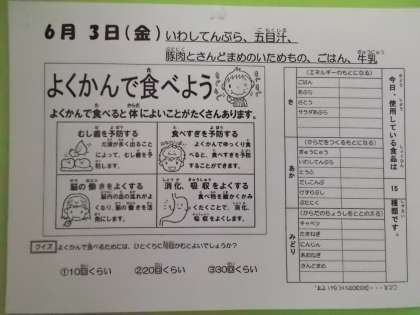 6月 3日(金) いわしてんぷら、五目汁、
豚肉とさんどまめのいためもの、ごはん、牛乳
よくかんで食べよう
よくかんで食べると体によいことがたくさんあります。
むし歯を予防する
だ液が多く出ること
によって、むし歯を予
防します。
食べすぎを予防する
よくかんでゆっくり食
べると、食べすぎを予防
することができます。
脳の働きをよくする
脳内の血の流れがよ
くなり、脳の働きを活
発にします。
消化、吸収をよくする
食べ物を細かくかみ
くだくことで、消化、
吸収がよくなります。
クイズ よくかんで食べるためには、ひとくちに何回かむとよいでしょうか?
①10回くらい ②20回くらい ③30回くらい
今日、使用している食品は
15
種類です。
き
(エネルギーのもとになる)
ごはん
あぶら
さとう
サラダあぶら
あか
(からだをつくるもとになる)
ぎゅうにゅう
いわしてんぷら
とうふ
だしこんぶ
けずりぶし
ぶたにく
みどり
(からだのちょうしをととのえる)
キャベツ
たまねぎ
にんじん
あおねぎ
さんどまめ